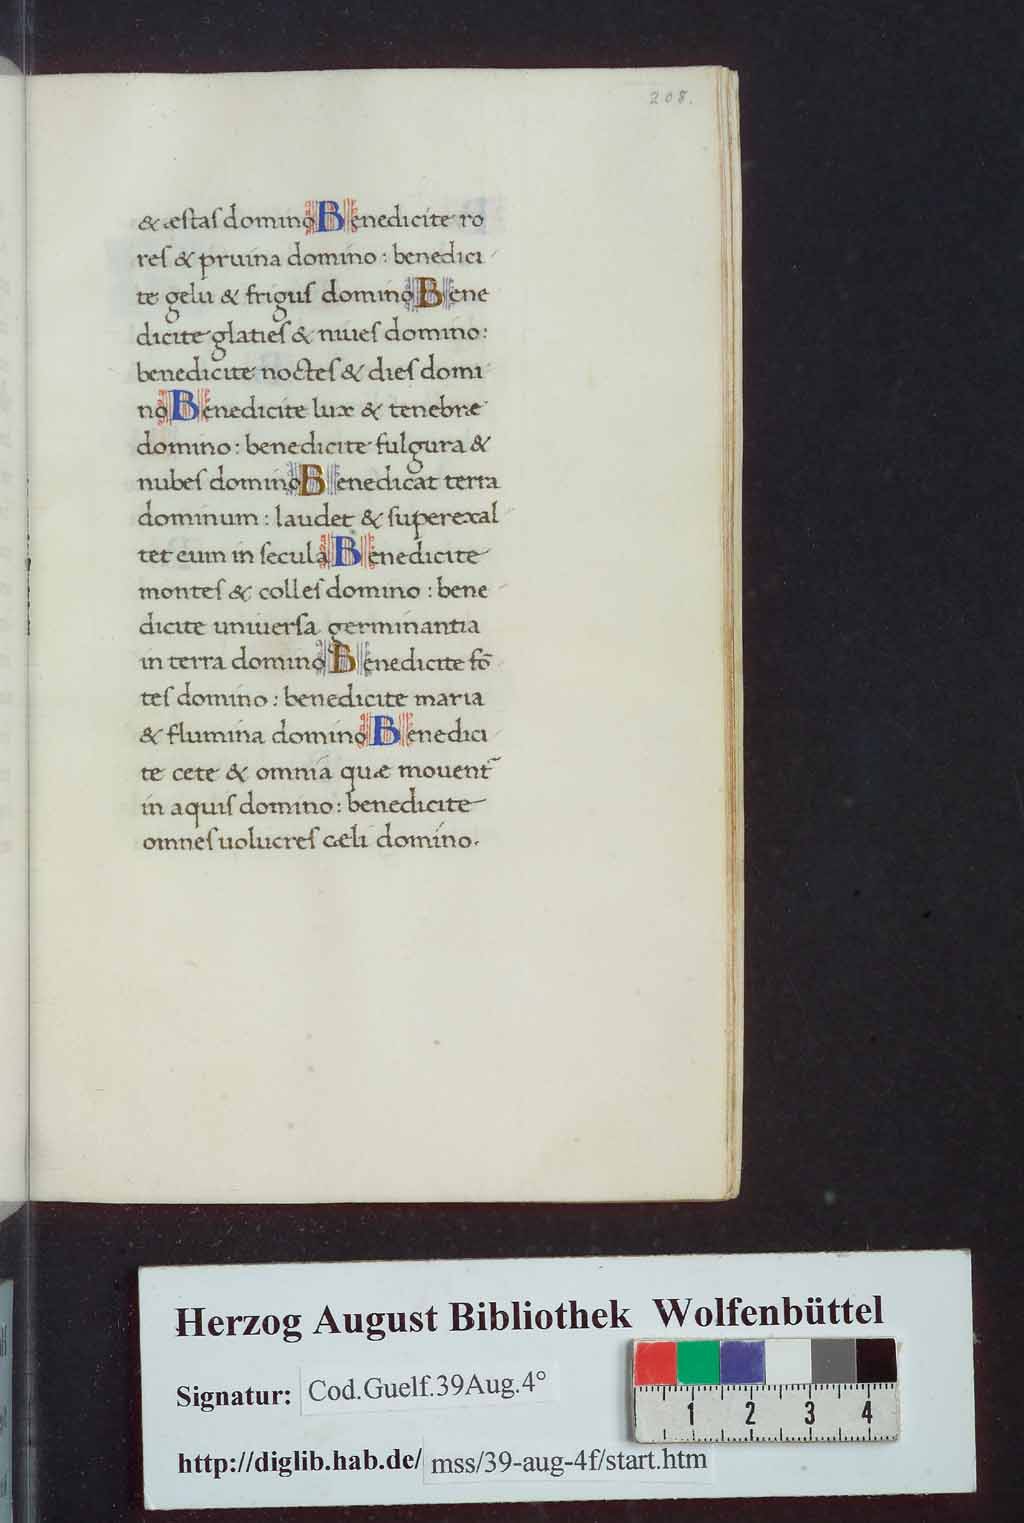 208.
& æstaſ domino Benedicite ro
reſ & pruina domino : benedici
te gelu & friguſ domino Bene
dicite glatieſ & niueſ domino :
benedicite nocteſ & dieſ domi
no Benedicite lux & tenebræ
domino : benedicite fulgura &
nubeſ domino Benedicat terra
dominum : laudet & ſuperexal
tet eum in ſecula Benedicite
monteſ & colleſ domino : bene
dicite uniuerſa germinantia
in terra domino Benedicite fō
teſ domino : benedicite maria
& flumina domino Benedici
te cete & omnia quæ mouent᷑
in aquiſ domino : benedicite
omneſ uolucreſ cæli domino.
Herzog August Bibliothek Wolfenbüttel
Signatur: Cod.Guelf.39Aug.4°
1 2 3 4
http://diglib.hab.de/ mss/39-aug-4f/start.htm